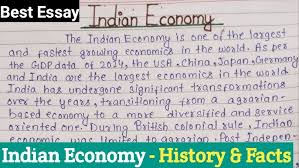 Best Essay
Indian Economy
The Indian Economy is one of the largest
and fastest growing economics in the world. As per
the GDP data of 2024, the USA, China, Japan, Germany
and India are the largest economics in the world
India has undergone significant transformations
over the years, transitioning from a agrarian-
based economy to a more diversified and service
oriented one. During British colonial rule, Indian
economic was limited to agrarian. Post Indepen-
Indian Economy - History & Facts